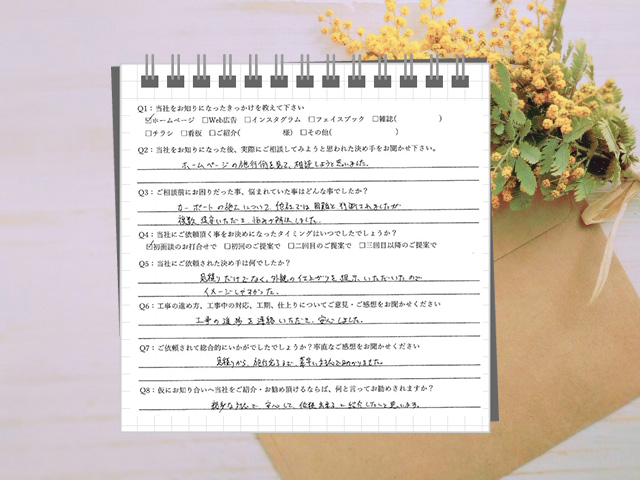 Q1：当社をお知りになったきっかけを教えて下さい
☑ホームページ　□Web広告　□インスタグラム　□フェイスブック　□雑誌(　　　　　)
□チラシ　□看板　□ご紹介(　　　　　様)　□その他(　　　　　　　)
Q2：当社をお知りになった後、実際にご相談してみようと思われた決め手をお聞かせ下さい。
ホームページの施行例を見て、相談しようと思いました。
Q3：ご相談前にお困りだった事、悩まれていた事はどんな事でしたか？
カーポートの施工について、他社では困難と判断されましたが
複数提案いただき、悩みが解決しました。
Q4：当社にご依頼頂く事をお決めになったタイミングはいつでしたでしょうか？
☑初面談のお打合せで　□初回のご提案で　□二回目のご提案で　□三回目以降のご提案で
Q5：当社にご依頼された決め手は何でしたか？
見積りだけでなく、外観の仕上がりを提示いただいたので
イメージしやすかった。
Q6：工事の進め方、工事中の対応、工期、仕上りについてご意見・ご感想をお聞かせください
工事の進捗を連絡いただき、安心しました。
Q7：ご依頼されて総合的にいかがでしたでしょうか？率直なご感想をお聞かせください
見積りから、施行完了まで、
Q8：仮にお知り合いへ当社をご紹介・お勧め頂けるならば、何と言ってお勧めされますか？
親身な対応で、安心して、依頼出来ると紹介したいと思います。